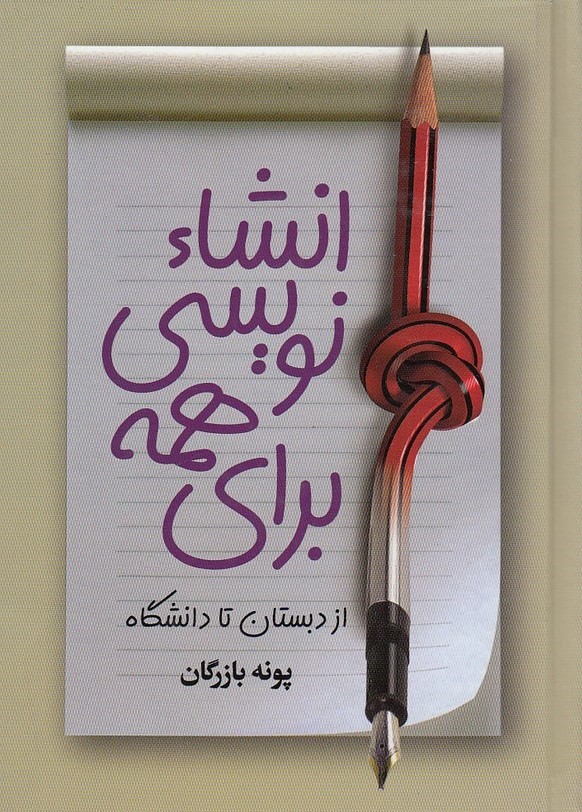 انشاء
نویسی
برای همه
از دبستان تا دانشگاه
پونه بازرگان